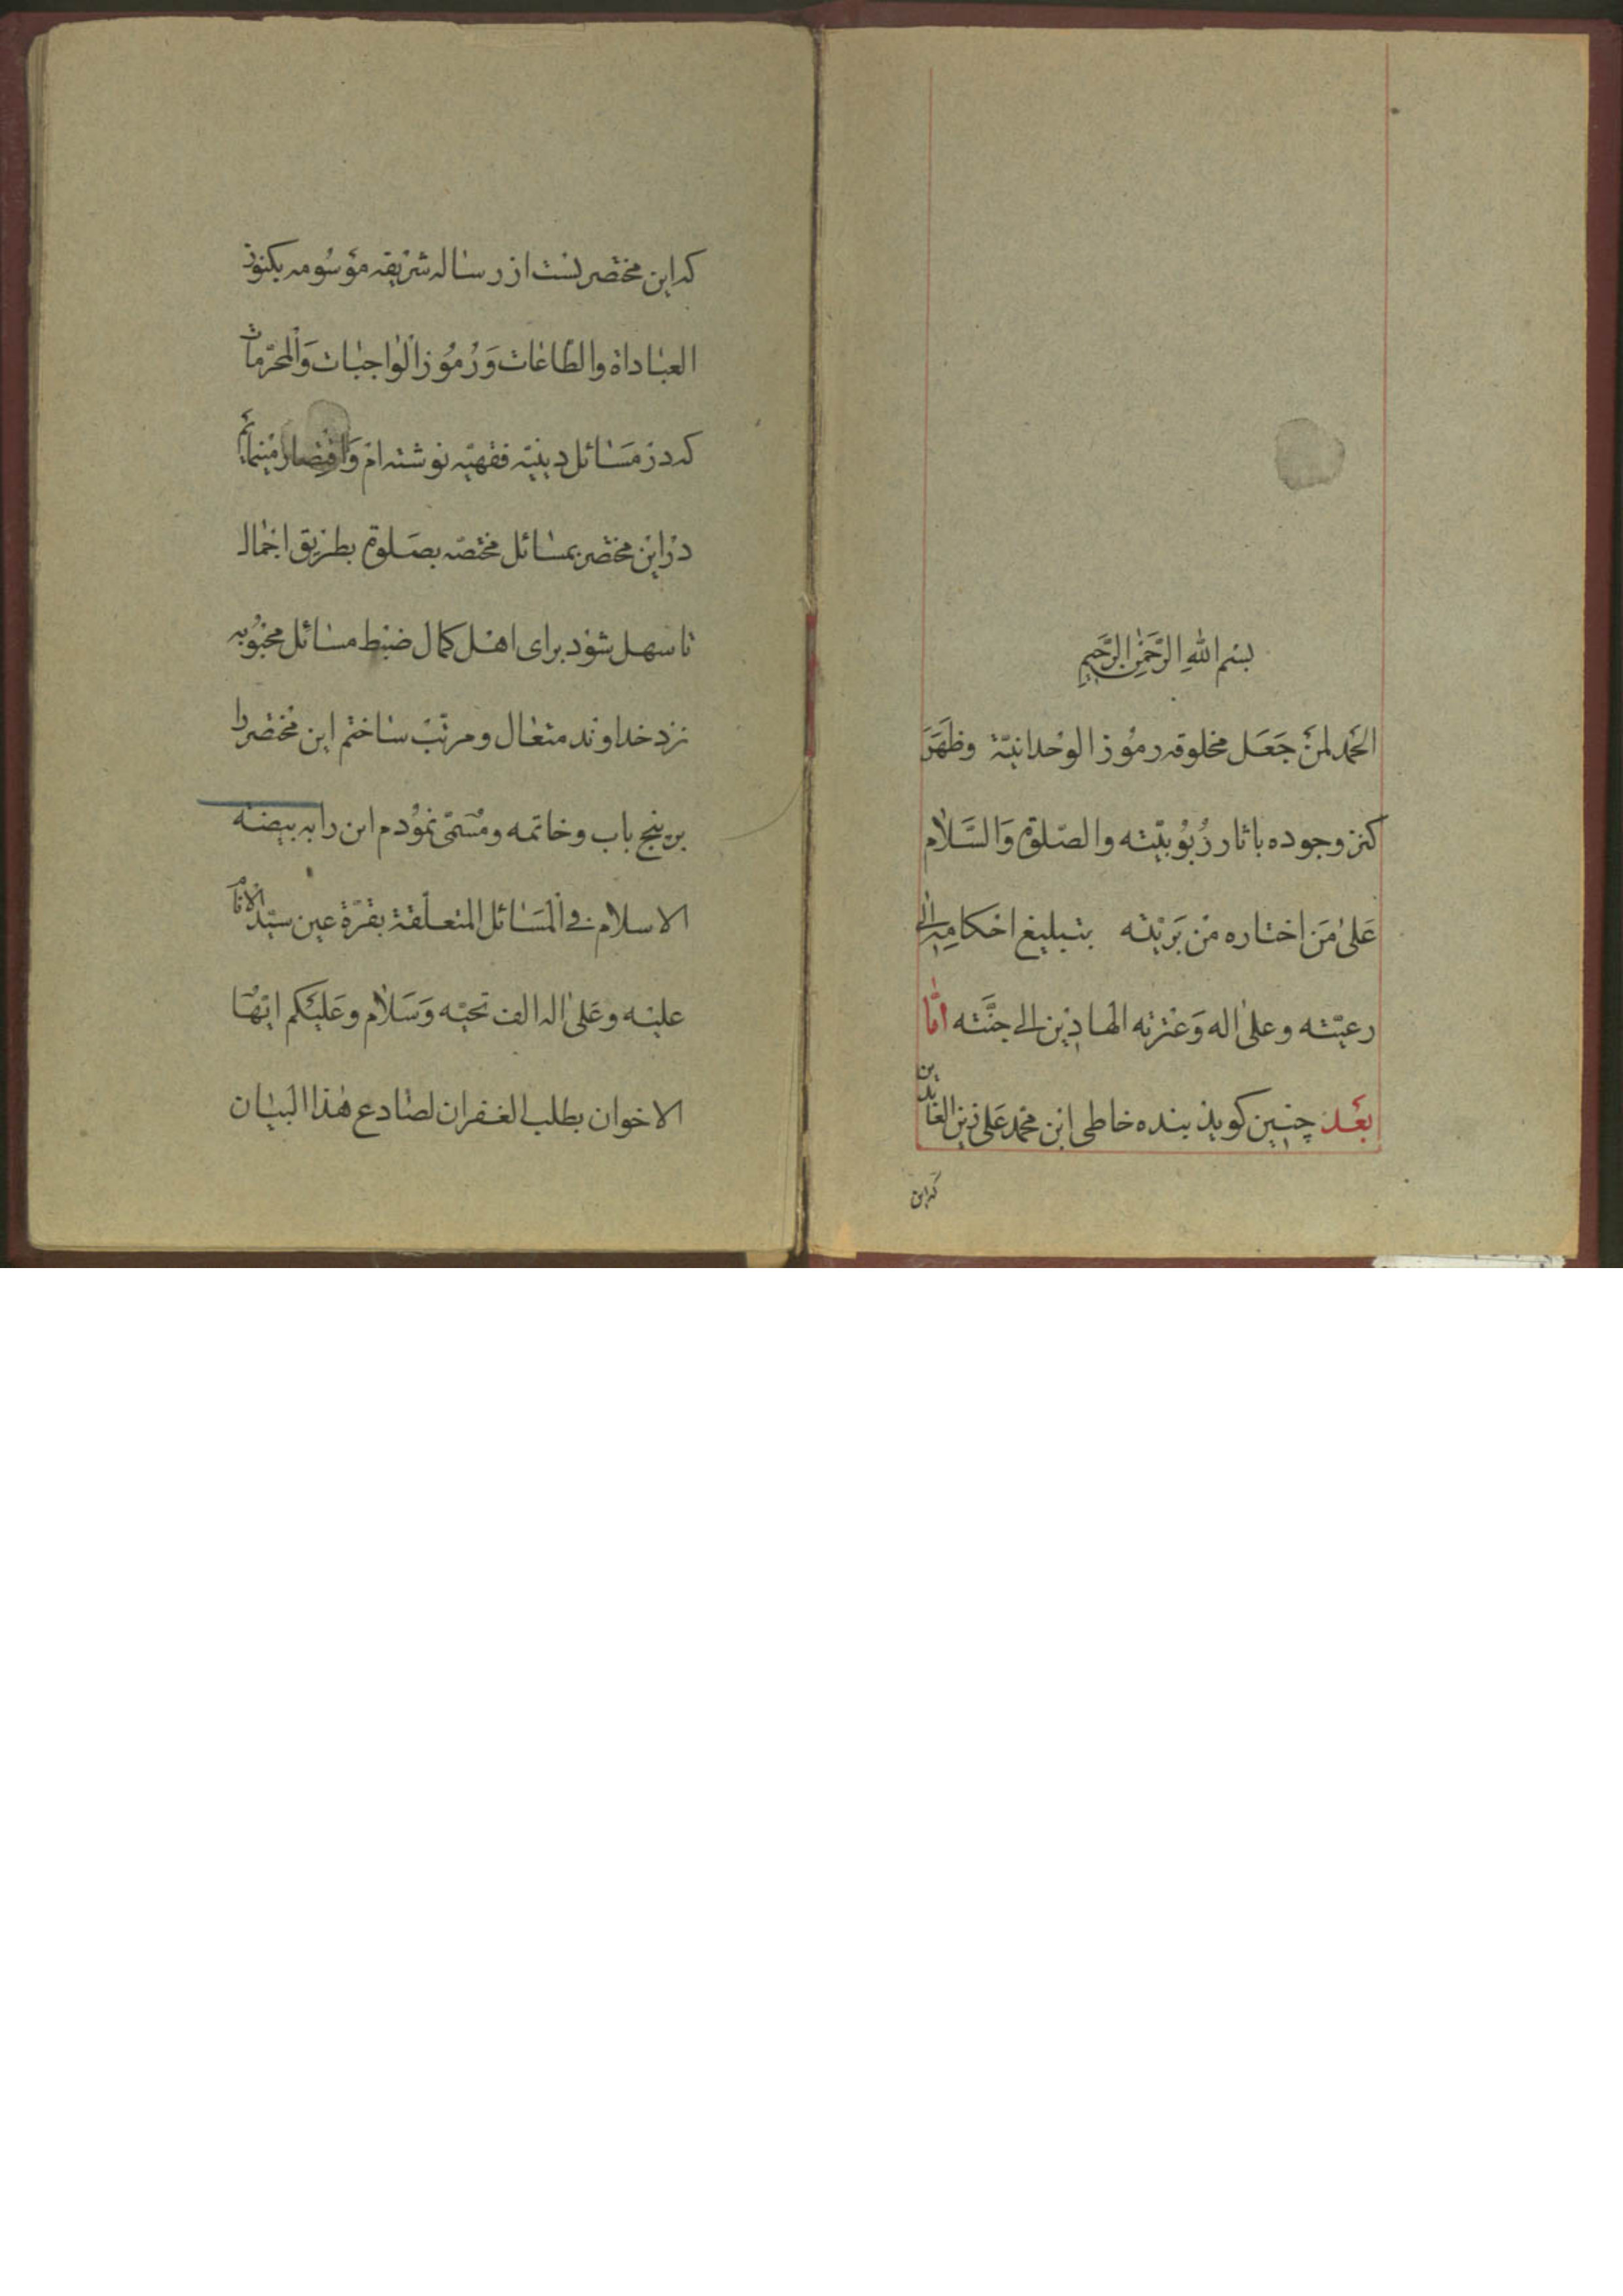 بسم الله الرحمن الرحیم
الحمد لمن جعل مخلوقه رموز الوحدانیّة وظهر
کنز وجوده باثار ربوبیّته والصّلوة والسّلام
علی من اختاره من بریّته بتبلیغ احکامه الی
رعیّته وعلی اله وعترته الهادین الی جنّته امّا
بعد چنین کوید بنده خاطی ابن محمد علی زین العابدین
که این
که این مختصریست از رساله شریفه موسومه بکنوز
العباداة والطّاعات ورموز الواجبات والمحرّمات
که در مسائل دینیّه فقهیّه نوشته ام واقتصار مینمایم
در این مختصر بمسائل مختصّه بصلوة بطریق اجمال
تا سهل شود برای اهل کمال ضبط مسائل محبوبه
نزد خداوند متعال و مرتّب ساختم این مختصر را
بر پنج باب و خاتمه و مسمّی نمودم این را به بیضه
الاسلام فی المسائل المتعلّقة بقرّة عین سیّد الانام
علیه وعلی اله الف تحیّه وسلام وعلیکم ایّها
الاخوان بطلب الغفران لصادع هذا البیان